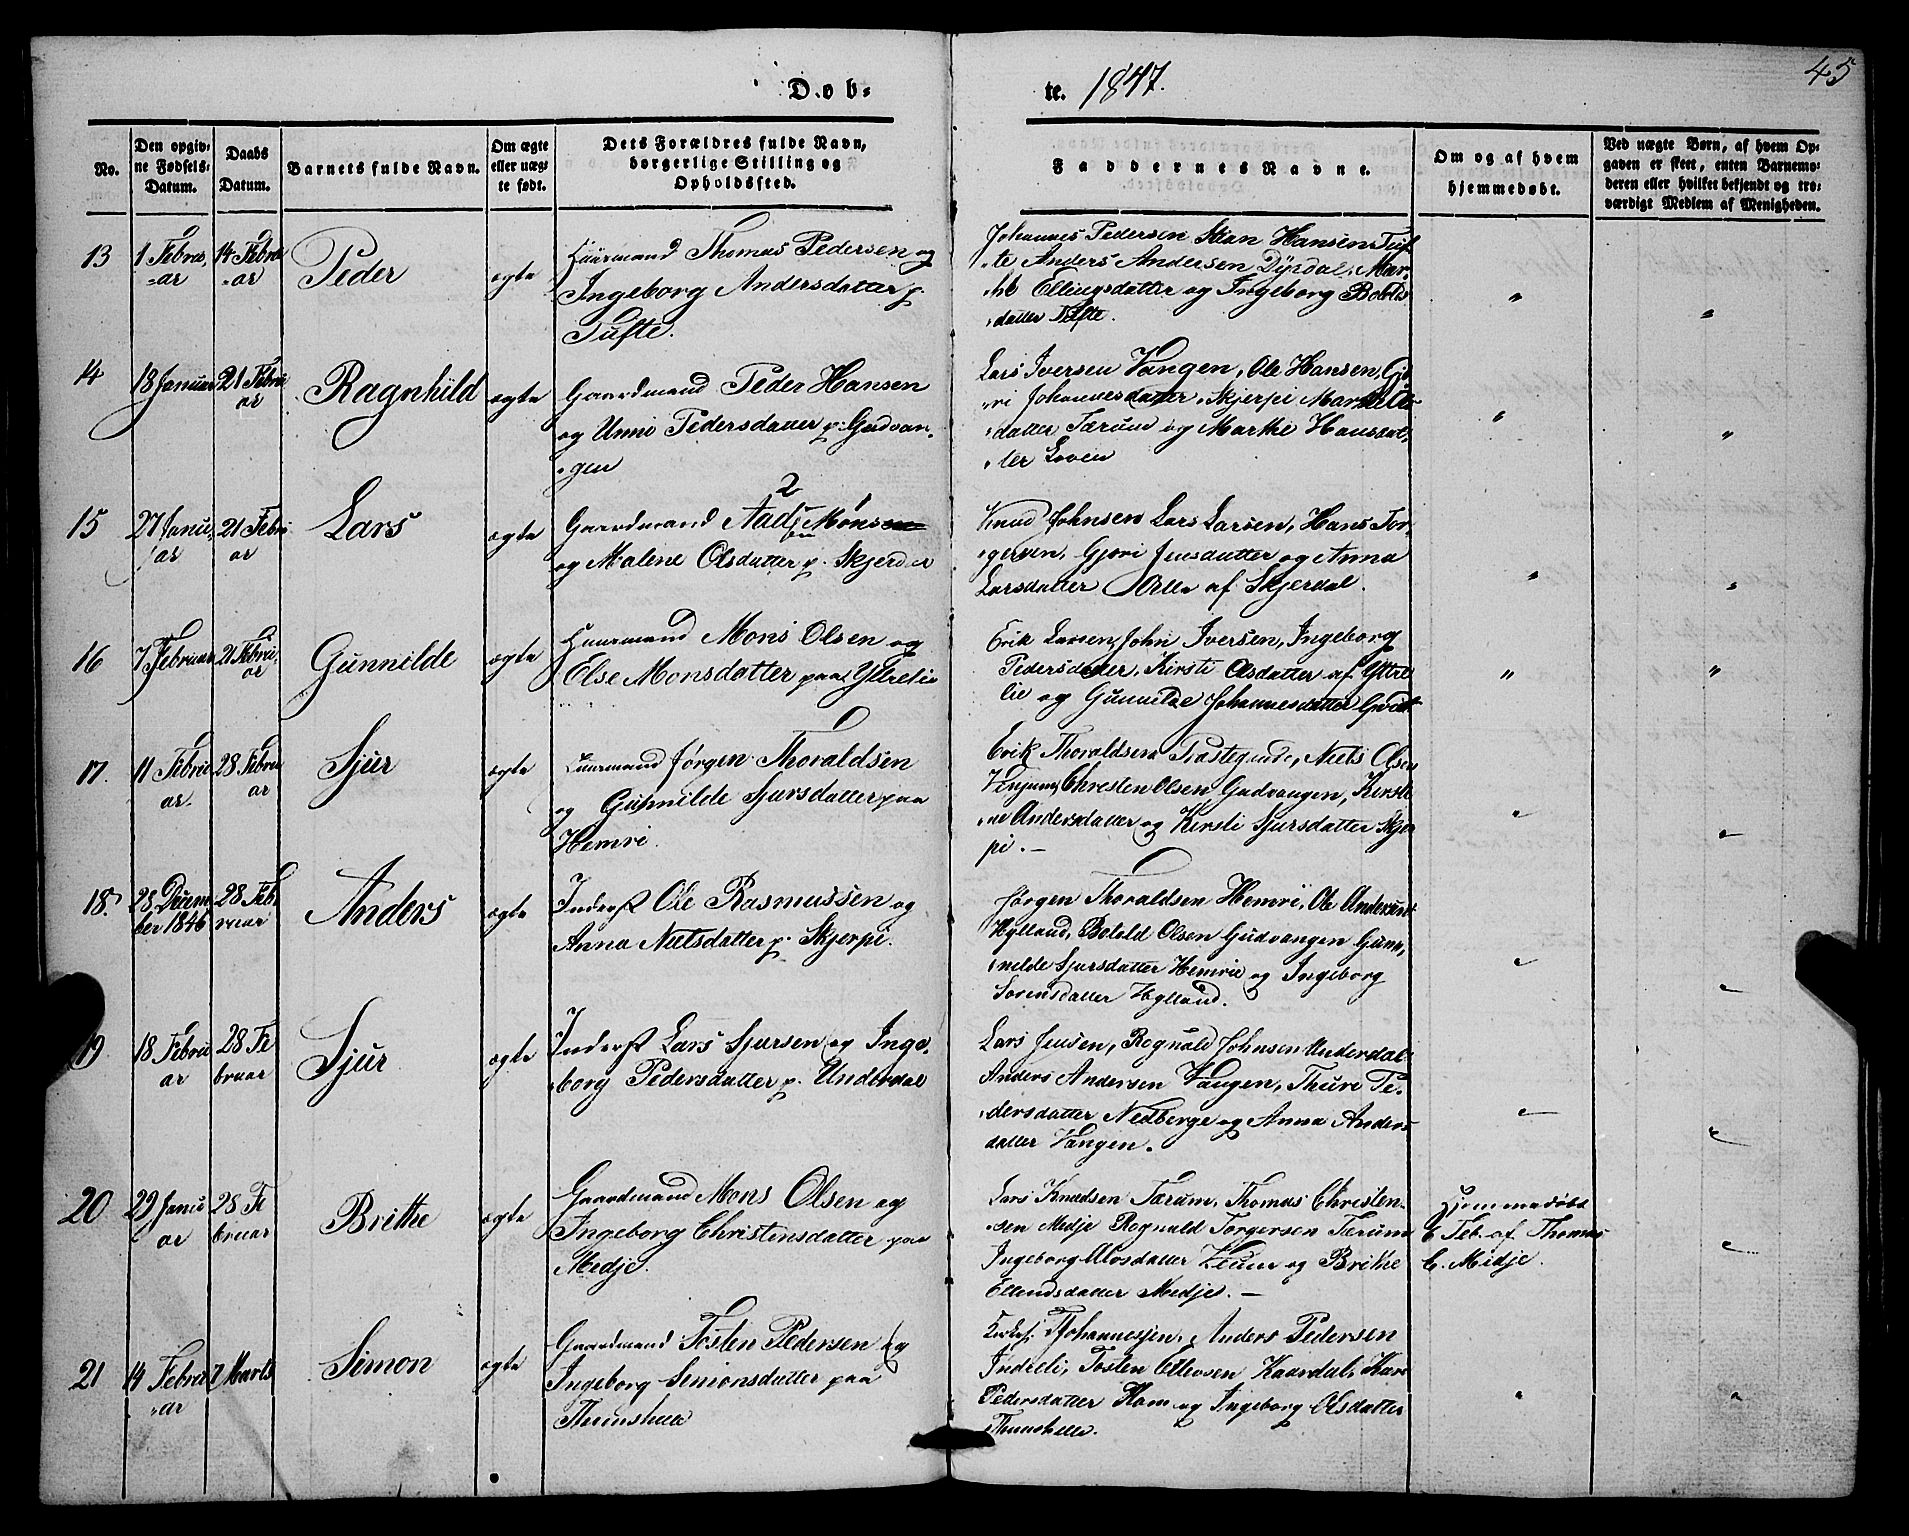 45
Døb-
te. 1847.
No.
Den opgiv-
ne Fødsels-
Datum.
Daabs
Datum.
Barnets fulde Navn.
Om ægte
eller uæg-
te født.
Dets Forældres fulde Navn,
borgerlige Stilling og
Opholdssted.
Faddernes Navne.
Om og af hvem
hjemmedøbt.
Ved uægte Børn, af hvem Op-
gaven er skeet, enten Barnemo-
deren eller hvilket bekjendt og tro-
værdigt Medlem af Menigheden.
13
1 Febru
ar
14 Febru
ar
Peder
ægte
Huusmand Thomas Pedersen og
Ingeborg Andersdatter p.
Tufte.
Johannes Pedersen Hansen Tuf
te Anders Andersen Dyrdal, Mar
the Ellingsdatter og Ingeborg
datter Tufte.
"
"
14
18 Januar
21 Febru
ar
Ragnhild
ægte
Gaardmand Peder Hansen
og Unni Pedersdatter p. Gudvan
gen
Lars Iversen Vangen, Ole Hansen, Gjø
ri Johannesdatter, Skjerpi
datter Tærum og Marthe Hansdat
ter
"
"
15
27 Janu
ar
21 Febru
ar
Lars
ægte
2
Gaardmand Møns
og Malene Olsdatter p. Skjerdal
Knud Johnsen Lars Larsen, Hans Tor
gersen, Gjøri Jensdatter og Anna
Larsdatter Alle af Skjerdal.
"
"
16
7 Februar
21 Febru
ar
Gunnilde
ægte
Huusmand Mons Olsen og
Else Monsdatter paa Ytrelie
Erik Larsen, John Iversen, Ingeborg
Pedersdatter, Kirsti Olsdatter af Yttre
lie og Gunnilde Johannesdatter
"
"
17.
11 Febru
ar.
28 Febru
ar
Sjur
ægte
Huusmand Jørgen Thoraldsen
og Gunnilde Sjursdatter paa
Hemri.
Erik Thoraldsen Prestegrde, Niels Olsen
Vinjum, Christen Olsen Gudvangen, Kirsti
ne Andersdatter og Kirsti Sjursdatter Skjer
pi. –
"
"
18.
28 Decem
ber 1846
28 Feb
ruar
Anders
ægte
Inderst Ole Rasmussen og
Anna Nielsdatter p. Skjerpi.
Jørgen Thoraldsen Hemri, Ole Andersen
Hylland, Botold Olsen Gudvangen Gun
nilde Sjursdatter Hemrie og Ingeborg
Sørensdatter Hylland.
"
"
19
18 Febru
ar
28 Fe
bruar
Sjur
ægte
Inderst Lars Sjursen og Inge
borg Pedersdatter p. Underdal
Lars Jensen, Rognald Johnsen Underdal
Anders Andersen Vangen, Thuri Pe
dersdatter Nedberge og Anna Anders
datter Vangen.
"
"
20
29 Janu
ar
28 Fe
bruar
Brithe
ægte
Gaardmand Mons Olsen og
Ingeborg Christensdatter paa
Medje.
Lars Knudsen Tærum, Thomas Christen
sen Medje Rognald Torgersen Tærum
Ingeborg og Brithe
Ellendsdatter Medje. –
Hjemmedøbt
6 Feb. af Thomas
C. Midje.
"
21
14 Febru
ar
7 Marts
Simon
ægte
Gaardmand Tosten Pedersen og
Ingeborg Simonsdatter paa
Thunshelle
Johannessen, Anders Pedersen
Indreli, Tosten Ellevsen Kaardal, Kari
Pedersdatter Ham og Ingeborg Olsdatter
Thunshelle.
"
"